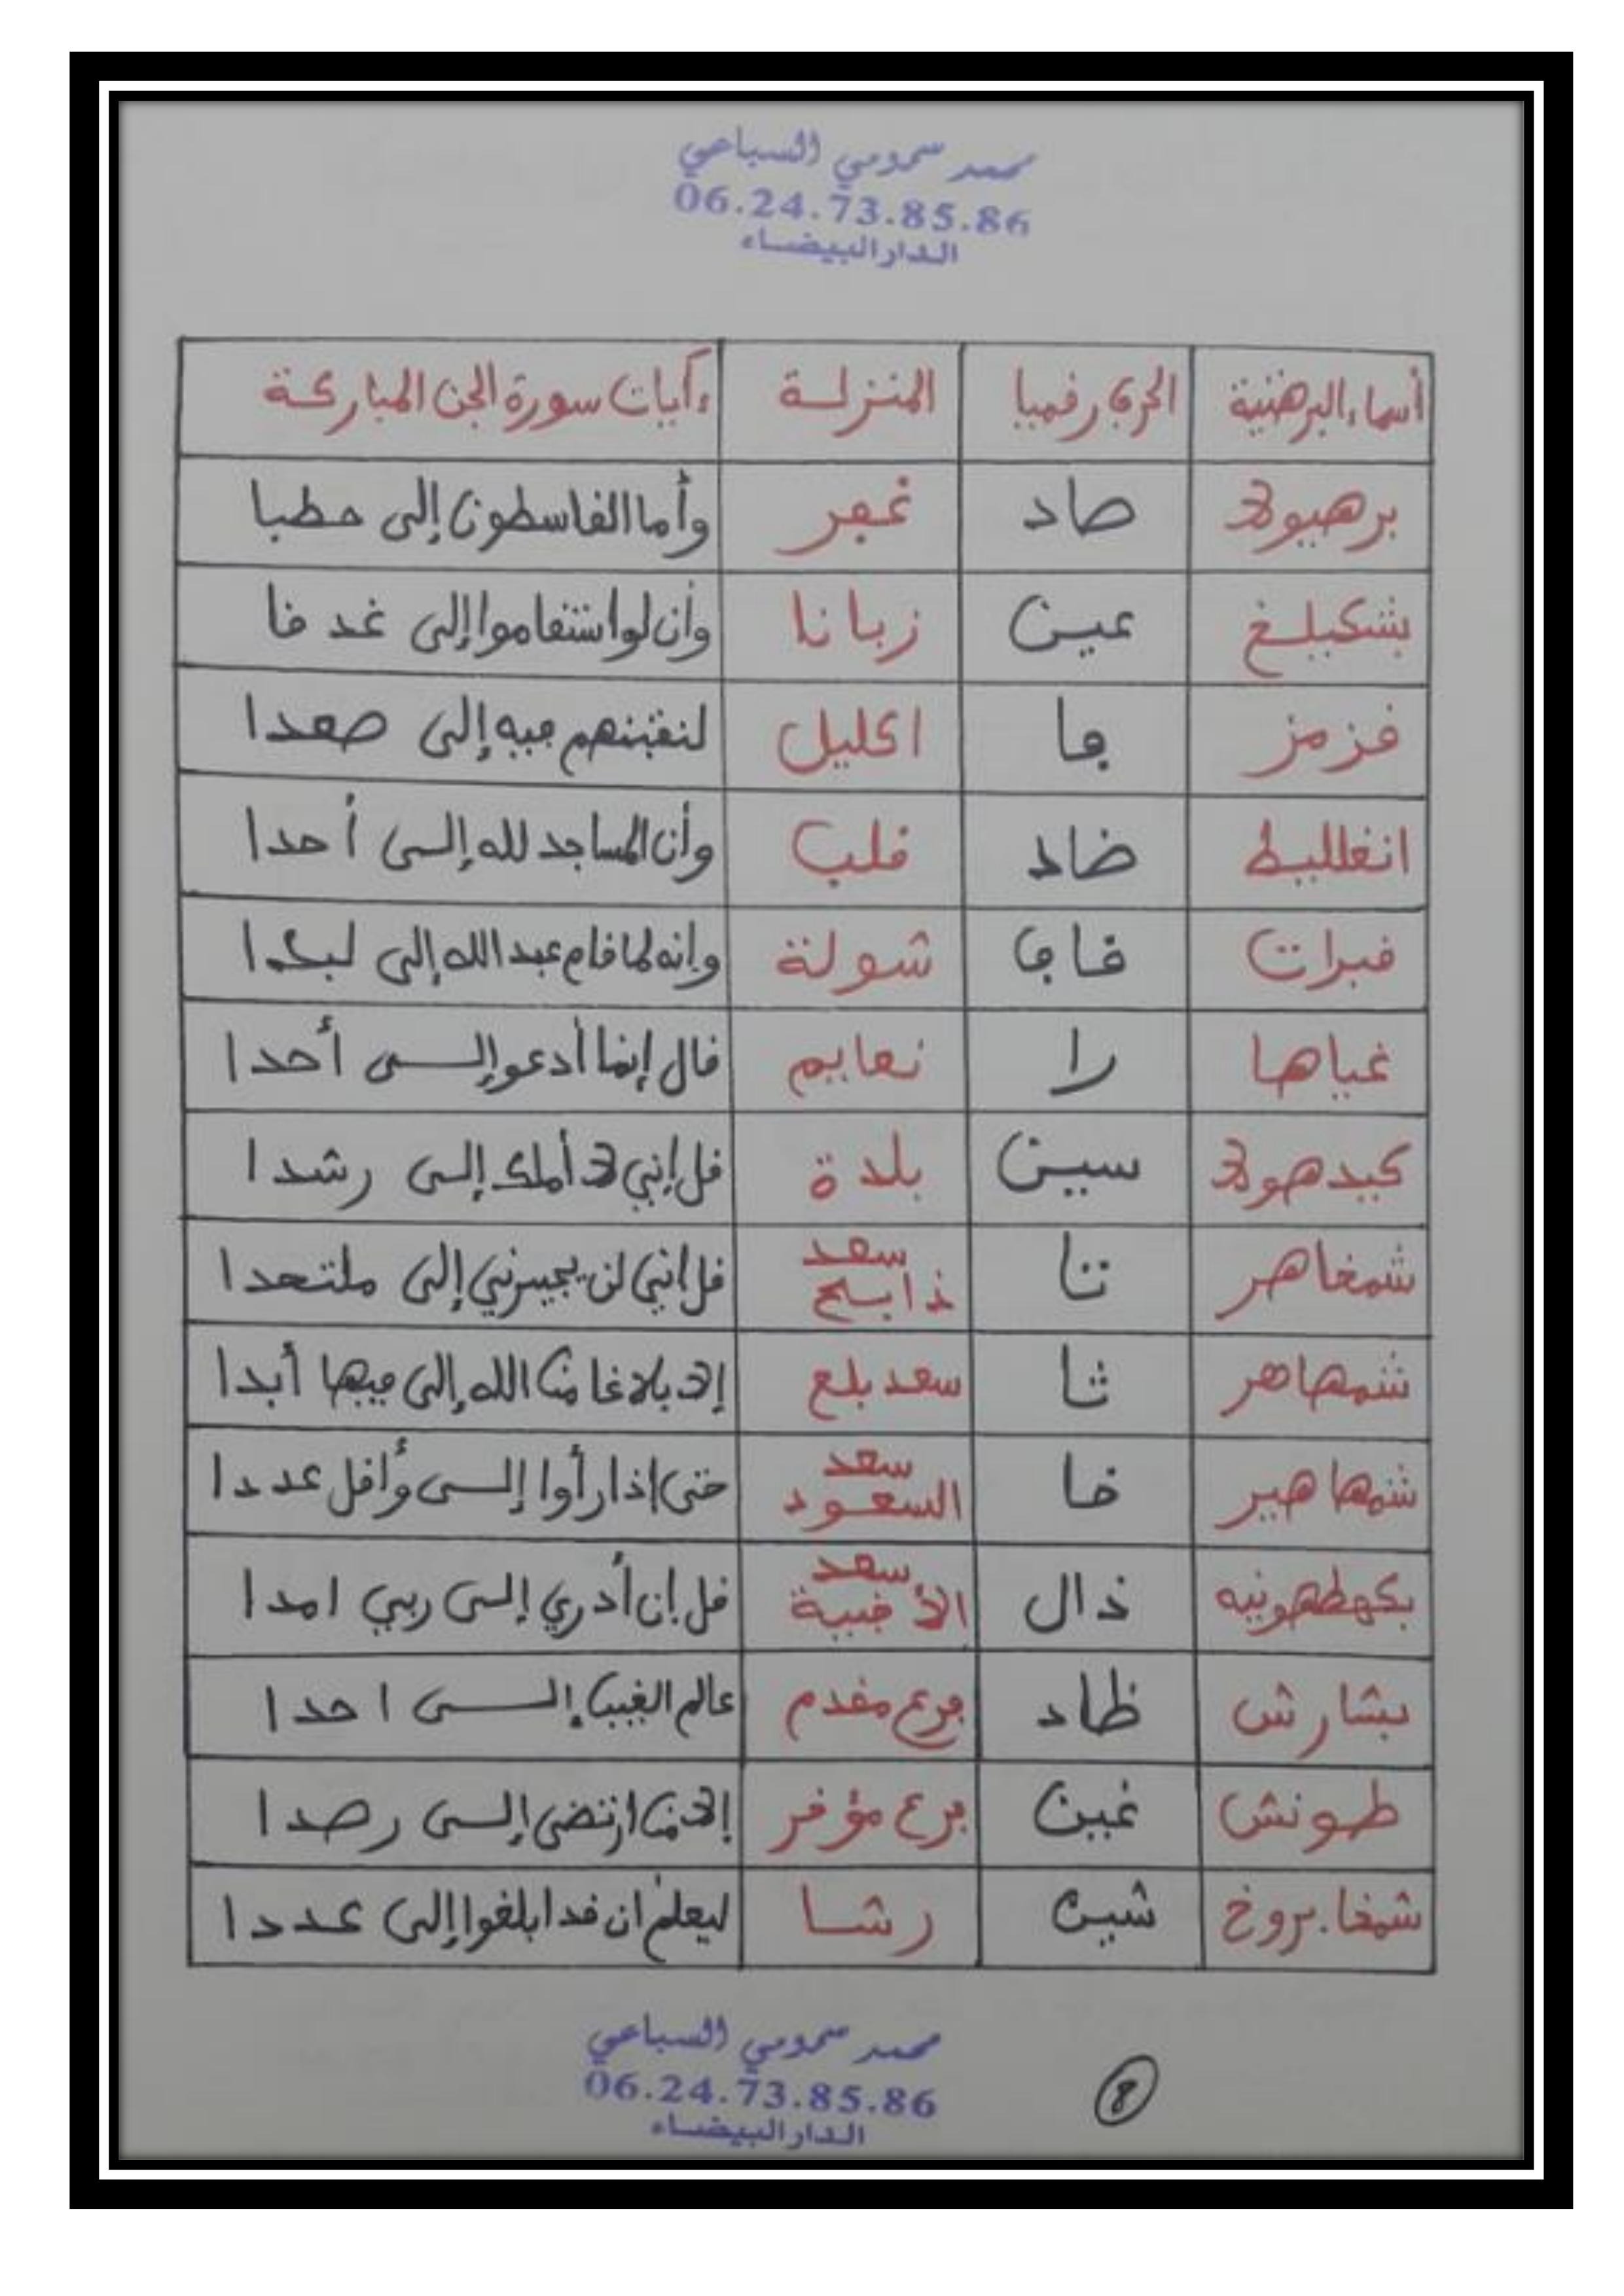 محمد سموميي السباعي
06.24.73.85.86
الدار البيضاء
أسماء البرهتية الحرف رقميا المنزلة ءايات سورة الجن المباركة
برهيولا صاد غفر وأما القاسطون إلى حطبا
بشكيلغ عين زبانا وأن لو استقاموا إلى غدقا
قزمز فا اكليل لنفتنهم فيه إلى صعدا
انغلليط ضاد قلب وأن المساجد لله إلى أحدا
قبرات قاف شولة وإنه لما قام عبد الله إلى لبدا
غياها را نعايم قال إنما أدعو إلى أحدا
كيدهولا سين بلدة قل إني لا أملك إلى رشدا
شمخاهر تا سعد ذابح قل إني لن يجيرني إلى ملتحدا
شمهاهر ثا سعد بلع إلا بلاغا من الله إلى فيها أبدا
شمهاهير خا سعد السعود حتى إذا رأوا إلى وأقل عددا
بكهطهونيه ذال سعد الأخبية قل إن أدري إلى ربي امدا
بشارش ظاد فرع مقدم عالم الغيب إلى احدا
طونش غين فرع مؤخر إلا من ارتضى إلى رصدا
شمخا بروخ شين رشا ليعلم ان قد ابلغوا إلى عددا
محمد سمومي السباعي
06.24.73.85.86
الدار البيضاء
8